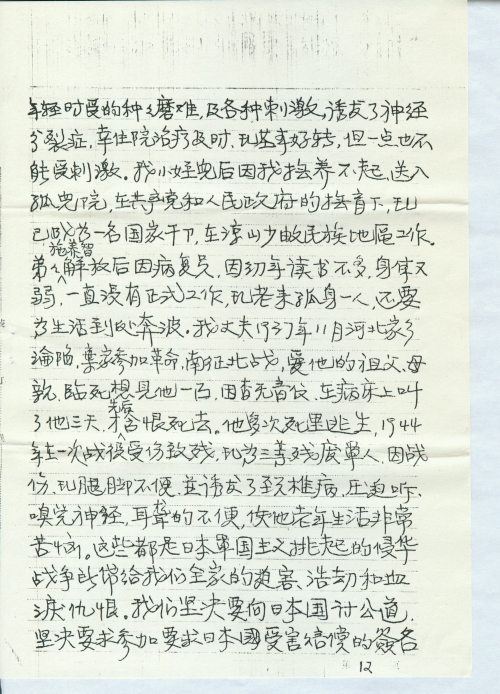 年轻时受的种々磨难,及各种刺激,诱发了神经
分裂症,幸住院治疗及时,现基本好转,但一点也不
能受刺激。我小姪兒后因我抚养不起,送入
孤兒院,在共产党和人民政府的抚育下,现
已成为一名国家干卩,在凉山少数民族地區工作。
施泰智
弟々解放后因病复员,因幼年读书不多,身体又
弱,一直没有正式工作,现老来孤身一人,还要
为生活到处奔波。我丈夫1937年11月河北家乡
淪陷,棄家参加革命,南征北战,爱他的祖父、母
親,临死想见他一面,因杳无音信,在病床上叫
了他三天,才含恨死去。他多次死里逃生,1944
先后
年在一次战役受伤致残,现为三等残废軍人,因战
伤,现腿脚不便,並诱发了颈椎病,压迫听、
嗅觉神经,耳聋的不便,使他老年生活非常
苦恼。这些都是日本軍国主义挑起的侵华
战争所带给我们全家的迫害、浩劫和血
淚仇恨。我们坚决要向日本国讨公道,
坚决要求参加要求日本國受害賠償的簽名
12